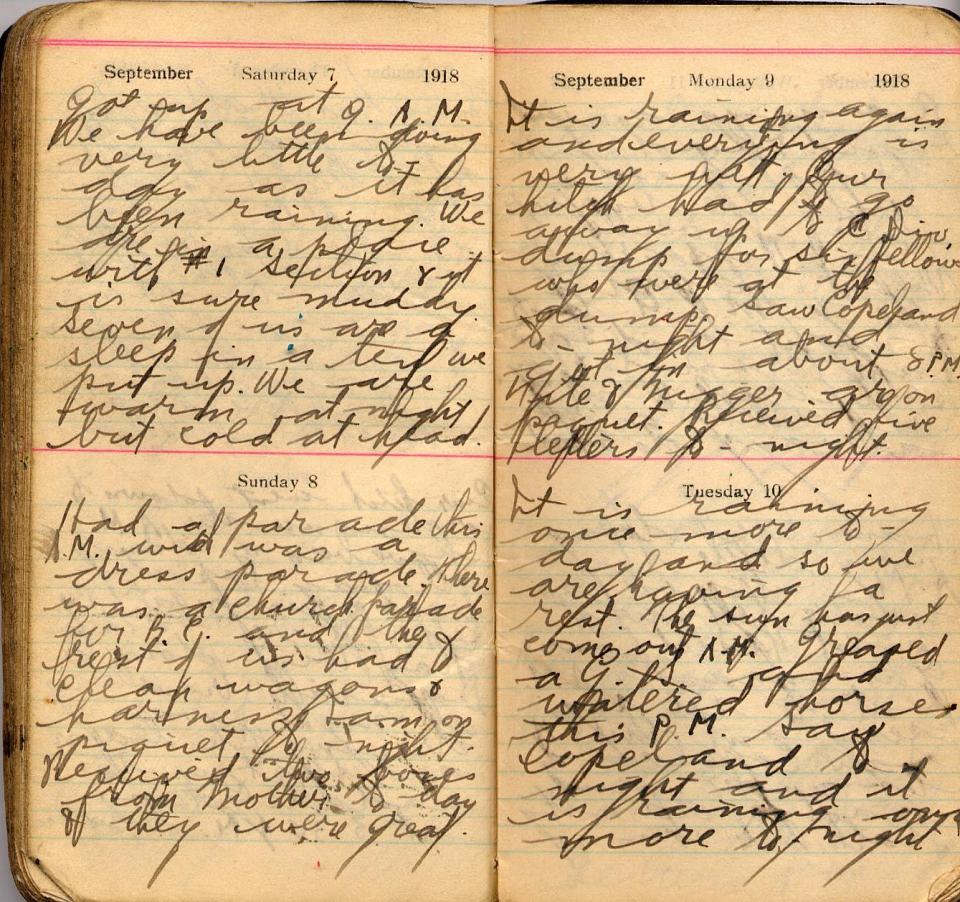 September Saturday 7 1918
Got up at 9. A.M.
We have been doing
very little to-
day as it has
been raining. We
are in a place
with #1 Section & it
is sure muddy
Seven of us are a
sleep in a tent we
put up. We are
warm at night
but cold at head.
Sunday 8
Had a parade this
A.M. was a
dress parade. There
was a church parade
for R.C. and the
rest of us had to
clean wagons &
harness. I am on
piquet to-night.
Received two boxes
from Mother to-day
& they were great.
September Monday 9 1918
It is raining again
and everything is
very wet. Our
hitch had to go
away up to C Div.
dump for six fellows
who were at the
dump. Saw Copeland
to-night and
got in about 8 P.M.
& Nigger are on
piquet. Received five
letters to-night.
Tuesday 10
It is raining
once more to-
day and so we
are having a
rest. The sun has just
come out A.M. Greased
a G.S. and
watered horses
this P.M. Saw
Copeland to
night and it
is raining once
more to-night